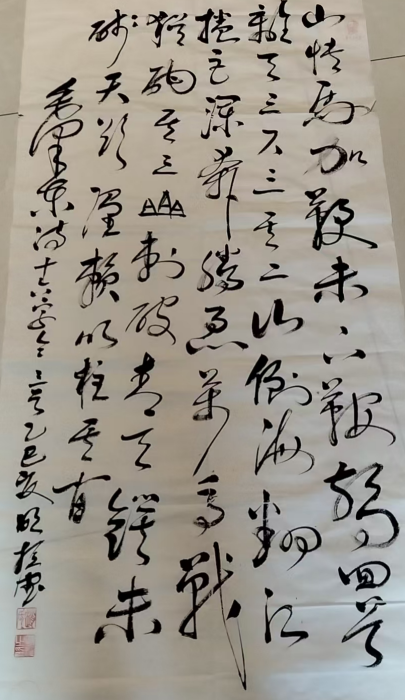 山快馬加鞭未下鞍驚回首
離天三尺三其二山倒海翻江
捲巨瀾奔騰急萬馬戰
猶酣其三山刺破青天鍔未
殘天欲墮賴以拄其間
毛澤東詩十六字令三首乙巳夏書